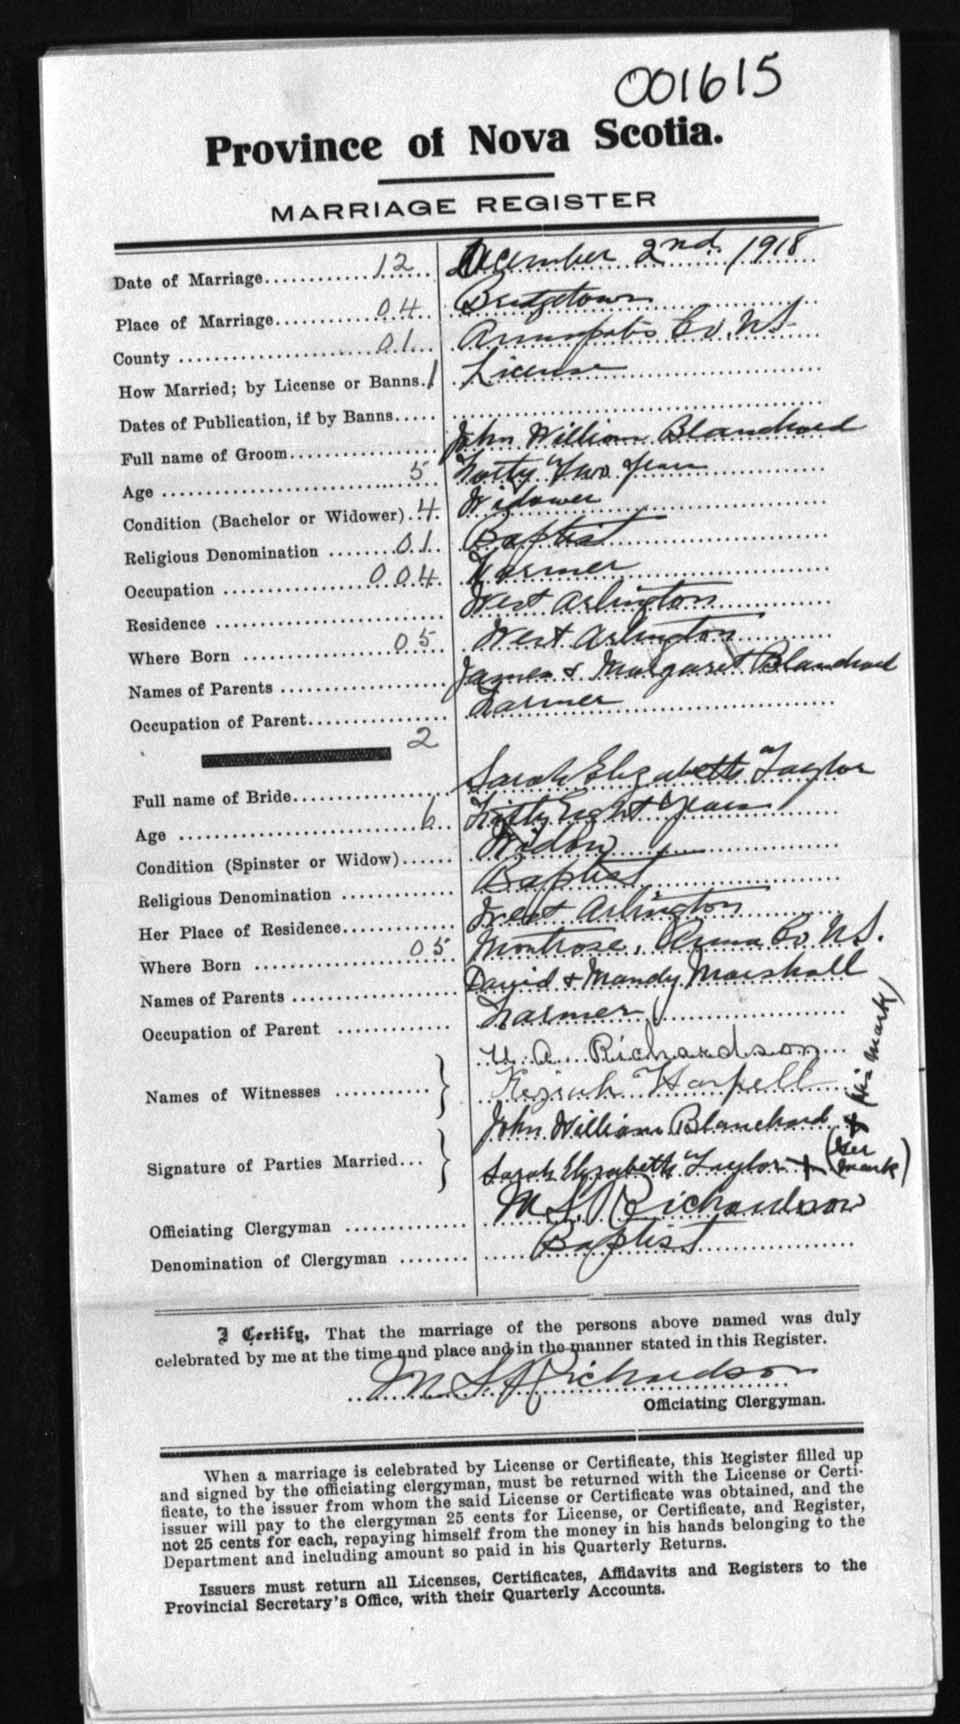 001615
Province of Nova Scotia.
MARRIAGE REGISTER
Date of Marriage............12.... December 2nd 1918
Place of Marriage............04 Bridgetown
County ............01... Annapolis Co. N.S.
How Married; by License or Banns.1 License
Dates of Publication, if by Banns.....
Full name of Groom............ John William Blanchard
Age ............5 Forty Two Years
Condition (Bachelor or Widower)..4. Widower
Religious Denomination ........01. Baptist
Occupation ............004. Farmer
Residence ............ West Arlington
Where Born ............05 West Arlington
Names of Parents ............ James & Margaret Blanchard
Occupation of Parent............ Farmer
2
Full name of Bride............ Sarah Elizabeth Taylor
Age ............6 Eight Years
Condition (Spinster or Widow)...... Widow
Religious Denomination ............ Baptist
Her Place of Residence............ West Arlington
Where Born ............05 Montrose, Anna Co N.S.
Names of Parents ............ David & Mandy Marshall
Occupation of Parent ............ Farmer
Names of Witnesses ............ A. Richardson
Keziah Harpell
Signature of Parties Married... John William Blanchard + (his mark)
Sarah Elizabeth Taylor + (her mark)
Officiating Clergyman ............ M S Richardson
Denomination of Clergyman ........ Baptist
I Certify, That the marriage of the persons above named was duly
celebrated by me at the time and place and in the manner stated in this Register.
M S Richardson
Officiating Clergyman.
When a marriage is celebrated by License or Certificate, this Register filled up
and signed by the officiating clergyman, must be returned with the License or Certi-
ficate, to the issuer from whom the said License or Certificate was obtained, and the
issuer will pay to the clergyman 25 cents for License, or Certificate, and Register,
not 25 cents for each, repaying himself from the money in his hands belonging to the
Department and including amount so paid in his Quarterly Returns.
Issuers must return all Licenses, Certificates, Affidavits and Registers to the
Provincial Secretary's Office, with their Quarterly Accounts.